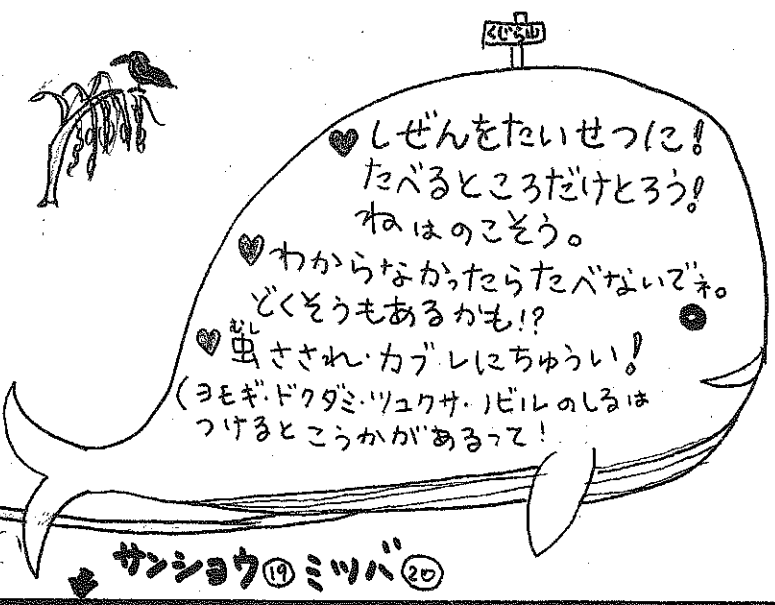 くじら山
♥しぜんをたいせつに！
たべるところだけとろう！
ねはのこそう。
♥わからなかったらたべないでネ。
どくそうもあるかも!?
♥虫さされ・カブレにちゅうい！
むし
(ヨモギ・ドクダミ・ツユクサ・ノビルのしるは
つけるとこうかがあるって！
サンショウ⑲ミツバ⑳